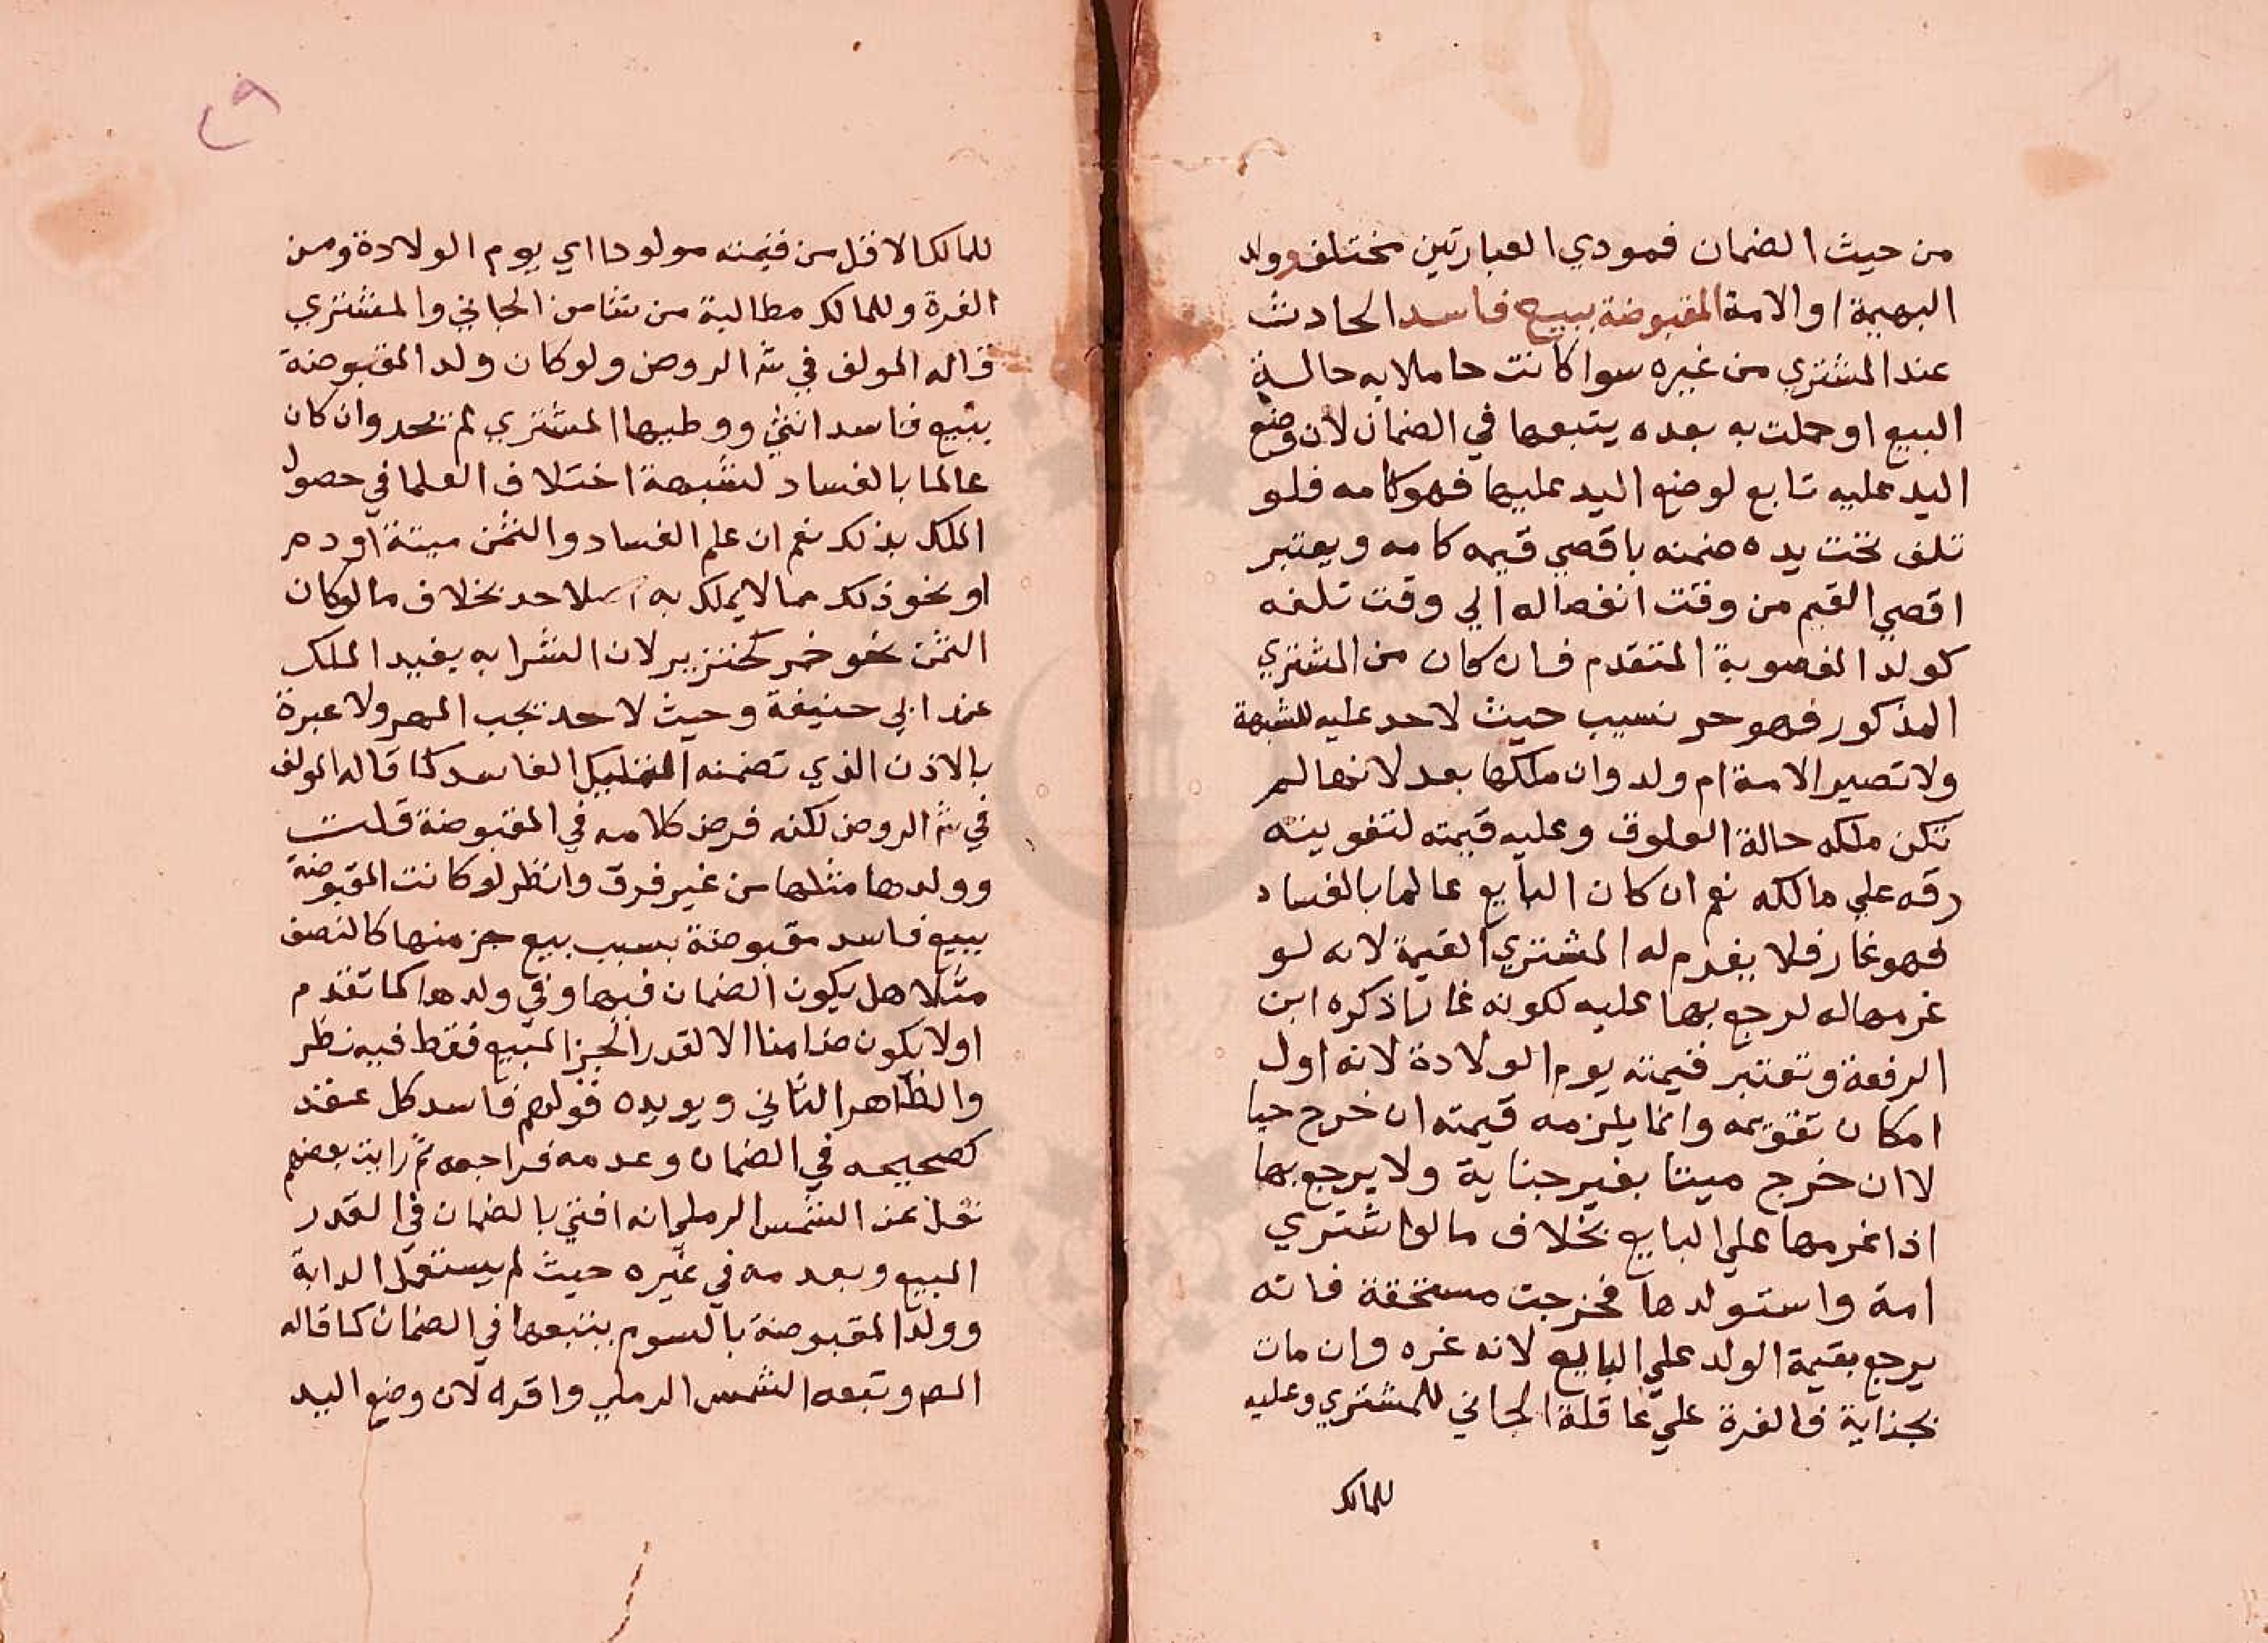 من حيث الضمان فمودي العبارتين مختلف وولد
البهيمة او الامة المقبوضة ببيع فاسد الحادث
عند المشتري من غيره سوا كانت حاملا به حالة
البيع او حملت به بعده يتبعها في الضمان لان وضع
اليد عليه تابع لوضع اليد عليها فهو كامه فلو
تلف تحت يده ضمنه باقصي قيمه كامه ويعتبر
اقصي القيم من وقت انفصاله الي وقت تلفه
كولد المغصوبة المتقدم فان كان من المشتري
المذكور فهو حر نسيب حيث لاحد عليه للشبهة
ولا تصير الامة ام ولد وان ملكها بعد لانها لم
تكن ملكه حالة العلوق وعليه قيمته لتفويته
رقه علي مالكه نعم ان كان البايع عالما بالفساد
فهو غار فلا يغرم له المشتري القيمة لانه لو
غرمها له لرجع بها عليه لكونه غارا ذكره ابن
الرفعة وتعتبر قيمته يوم الولادة لانه اول
امكان تقويمه وانما يلزمه قيمته ان خرج حيا
لا ان خرج ميتا بغير جناية ولا يرجع بها
اذا غرمها علي البايع بخلاف ما لو اشتري
امة واستولدها فخرجت مستحقة فانه
يرجع بقيمة الولد علي البايع لانه غره وان مات
بجناية فالغرة علي عاقلة الجاني للمشتري وعليه
للمالك
٢٩
للمالك الاقل من قيمته مولودا اي يوم الولادة ومن
الغرة وللمالك مطالبة من شا من الجاني والمشتري
قاله المولف في شر الروض ولو كان ولد المقبوضة
ببيع فاسد انثي ووطيها المشتري لم يحد وان كان
عالما بالفساد لشبهة اختلاف العلما في حصول
الملك بذلك نعم ان علم الفساد والثمن ميتة او دم
او نحو ذلك مما لا يملك به حد بخلاف ما لو كان
الثمن نحو خمر كخنزير لان الشرا به يفيد الملك
عند ابي حنيفة وحيث لا حد يجب المهر ولا عبرة
بالاذن الذي تضمنه التمليك الفاسد كذا قاله المولف
في شر الروض لكنه فرض كلامه في المقبوضة قلت
وولدها مثلها من غير فرق وانظر لو كانت المقبوضة
ببيع فاسد مقبوضة بسبب بيع جز منها كالنصف
مثلا هل يكون الضمان فيها وفي ولدها كما تقدم
اولا يكون ضامنا الا لقدر الجز المبيع فقط فيه نظر
والظاهر الثاني ويويده قولهم فاسد كل عقد
كصحيحه في الضمان وعدمه فراجعه ثم رايت بعضهم
نقل عن الشمس الرملي انه افتي بالضمان في القدر
المبيع وبعدمه في غيره حيث لم يستعمل الدابة
وولد المقبوضة بالسوم يتبعها في الضمان كما قاله
المص وتبعه الشمس الرملي واقره لان وضع اليد